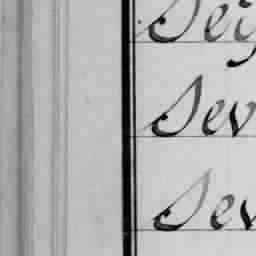 Sei
Sev
Sev